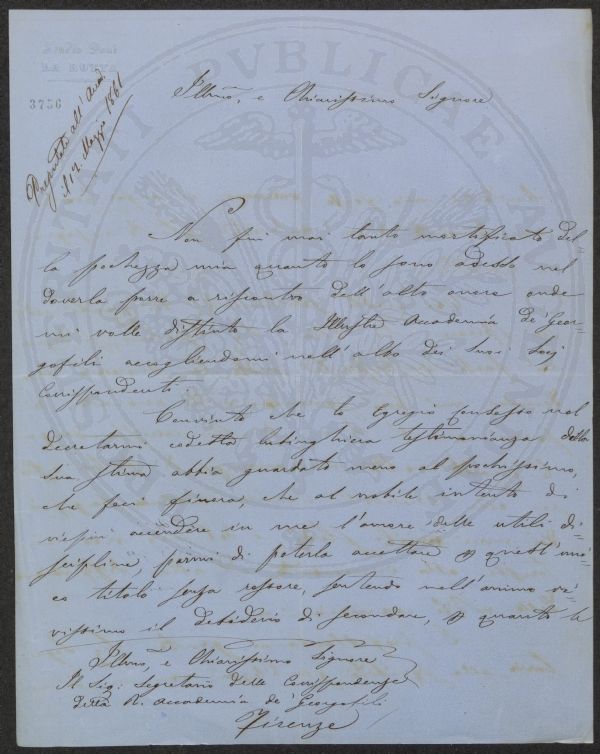 3756
Presentata all' Accad.
il 12. Maggio 1861
Illmo, e Chiarissimo Signore
Non fui mai tanto mortificato del-
la pochezza mia quanto lo sono adesso nel
doverla porre a riscontro dell'alto onore onde
mi volle distinto la Illustre Accademia de' Geor-
gofili accogliendomi nell'albo dei suoi Socj
Corrispondenti.
Convinto che lo Egregio Consesso nel
decretarmi codesta lusinghiera testimonianza della
sua stima abbia guardato meno al pochissimo,
che feci finora, che al nobile intento di
viepiù accendere in me l'amore delle utili di-
scipline, parmi di poterla accettare p quest'uni-
co titolo senza rossore, sentendo nell'animo vi-
vissimo il desiderio di secondare, p quanto le
Illmo, e Chiarissimo Signore
Il Sig: Segretario delle Corrispondenze
della R. Accademia de' Georgofili
Firenze
PUBLICAE